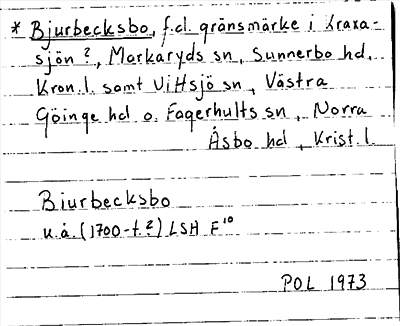 * Bjurbecksbo, f.d. gränsmärke i Kraxa-
sjön ?, Markaryds sn, Sunnerbo hd,
Kron.l. samt Vittsjö sn, Västra
Göinge hd o. Fagerhults sn, Norra
Åsbo hd, Krist.l.
Biurbecksbo
u.å. (1700-t.?) LSH F¹⁰
POL 1973